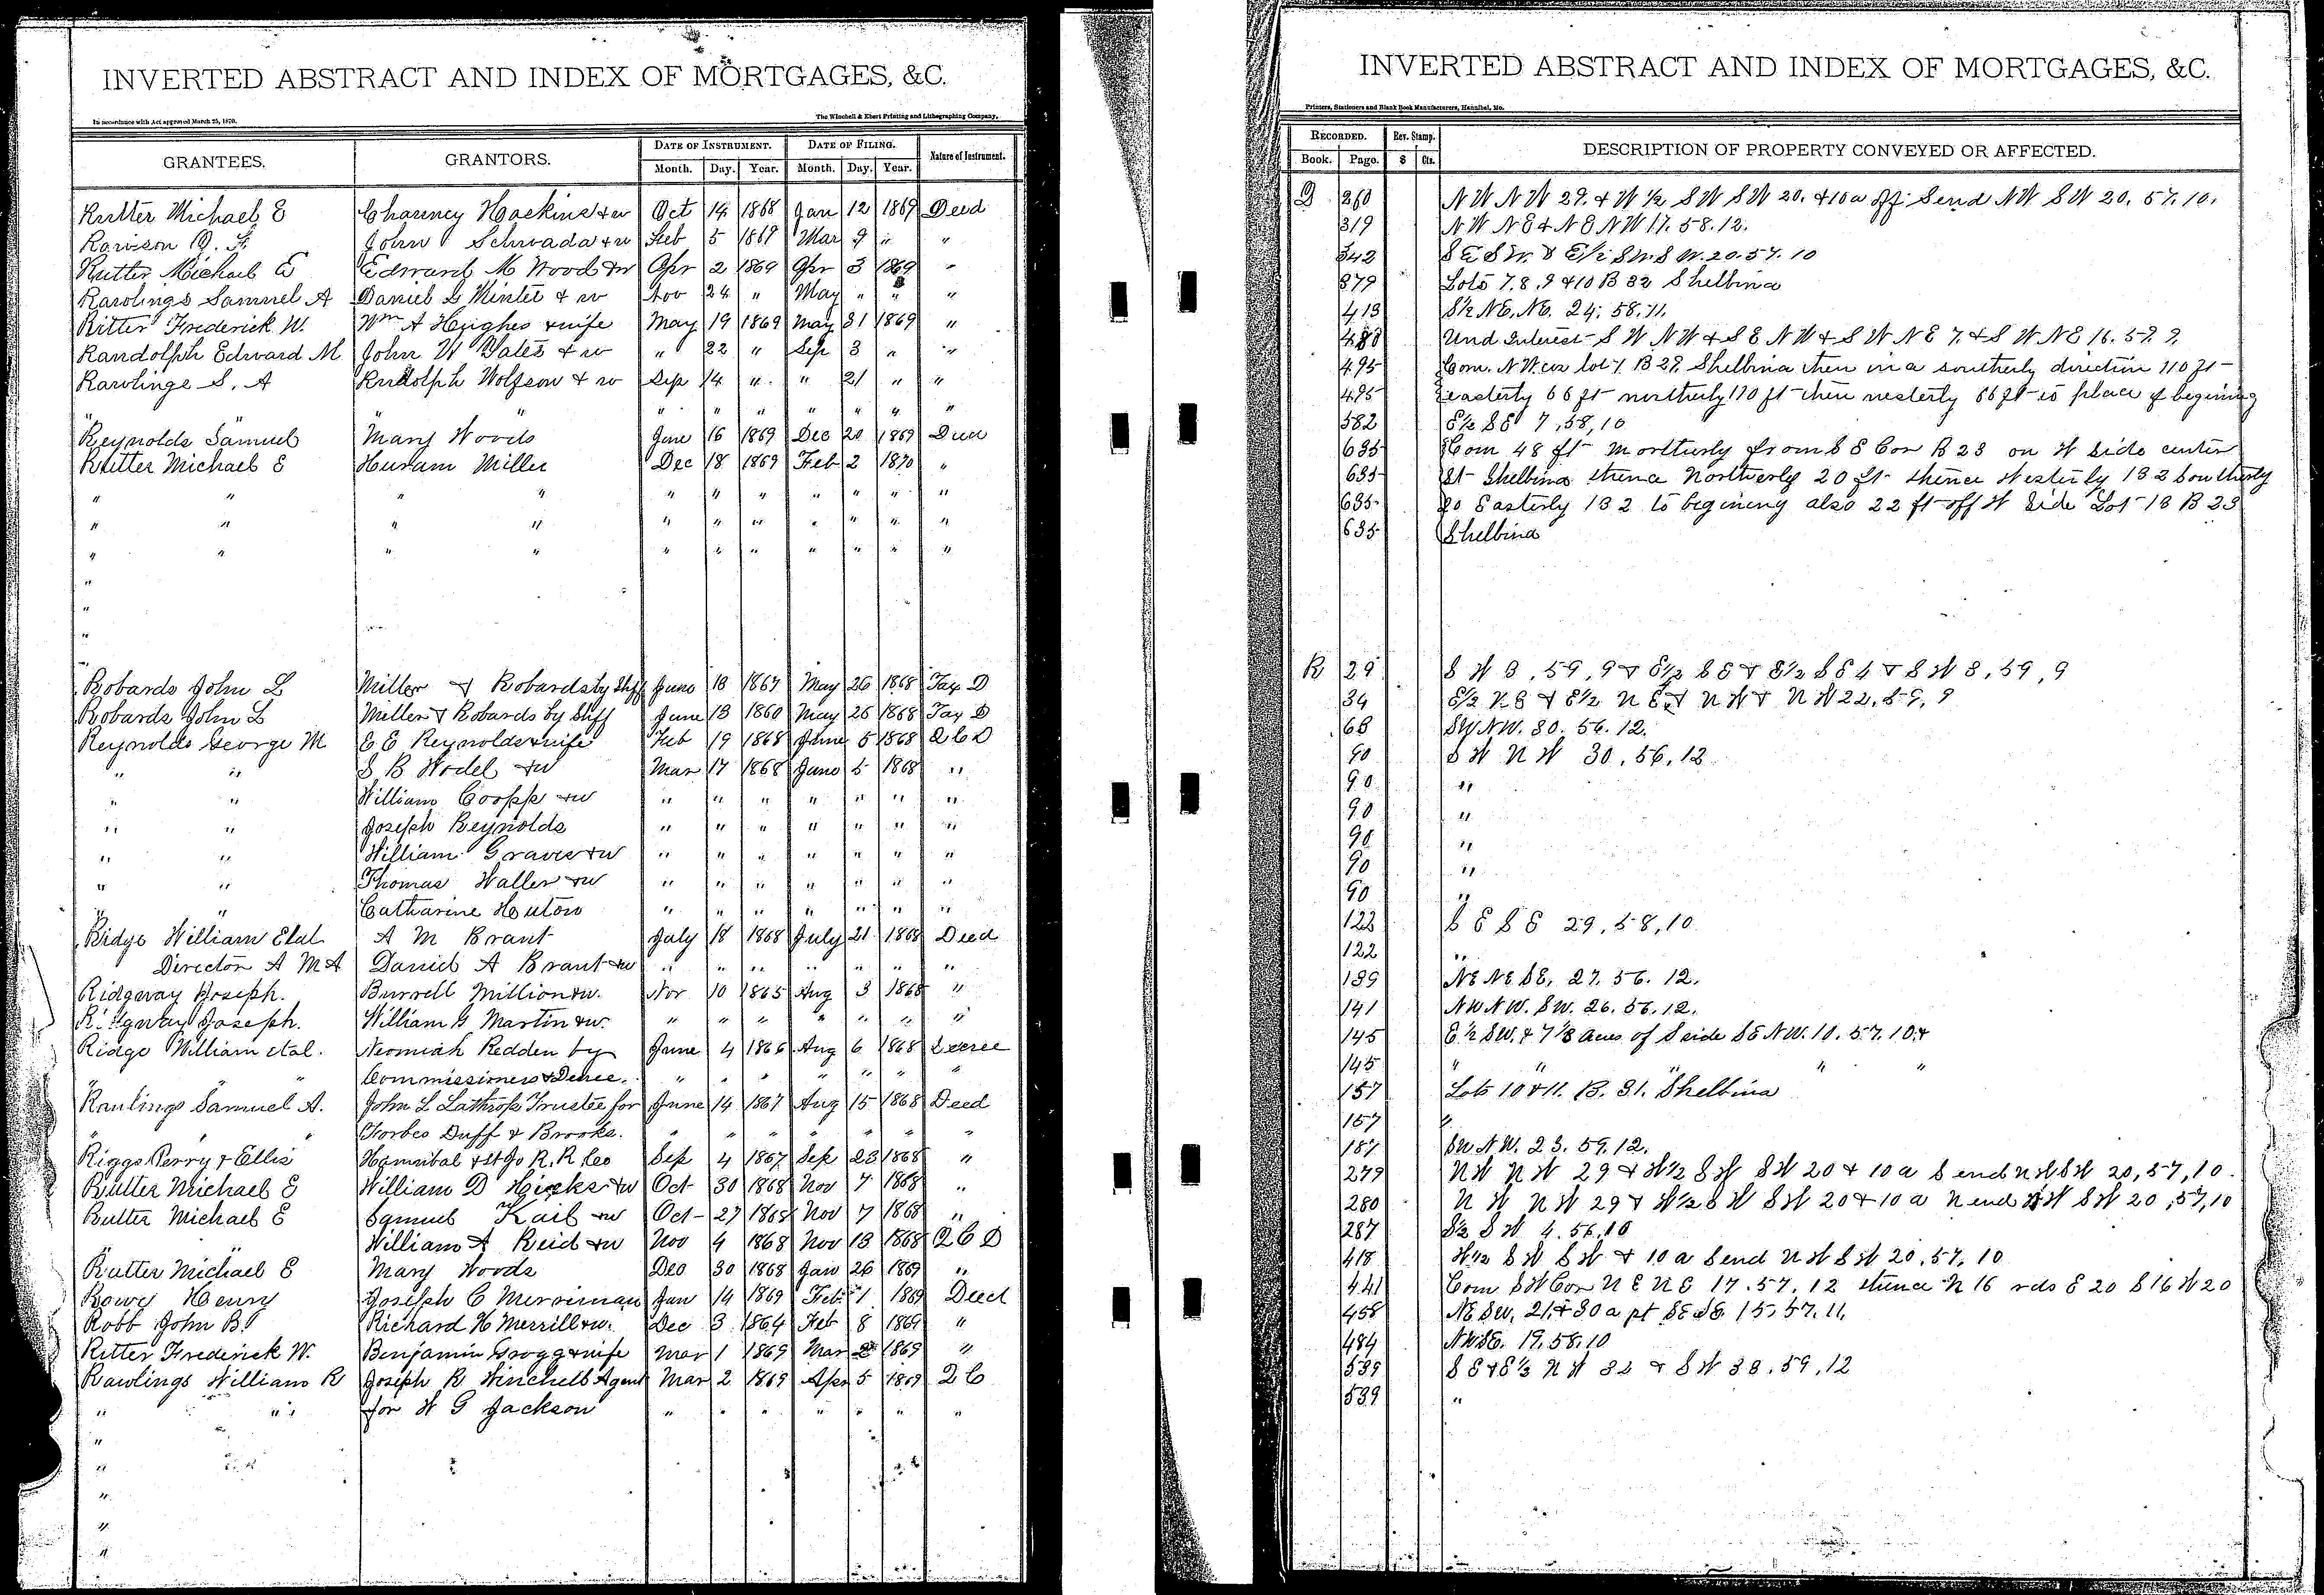 INVERTED ABSTRACT AND INDEX OF MORTGAGES, &C.
In accordance with Act approved March 25, 1870.
The Winchell & Ebert Printing and Lithographing Company,
GRANTEES. GRANTORS. DATE OF INSTRUMENT. DATE OF FILING. Nature of Instrument.
Month. Day. Year. Month. Day. Year.
Rutter Michael E Chauncy Hackins & w Oct 14 1868 Jan 12 1869 Deed
John Schwada & w Feb 5 1869 Mar 9 " "
Rutter Michael E Edward M Wood & w Apr 2 1869 Apr 3 1869 "
Rawlings Samuel A Daniel L Minter & w Nov 24 " May " " "
Ritter Frederick W. Wm A Hughes & wife May 19 1869 May 31 1869 "
Randolph Edward M John W Yates & w " 22 " Sep 3 " "
Rawlings S. A Rudolph Wolfson & w Sep 14 " " 21 " "
" " " " " " " " "
Reynolds Samuel Mary Woods June 16 1869 Dec 20 1869 Deed
Rutter Michael E Huram Miller Dec 18 1869 Feb 2 1870 "
" " " " " " " " " " "
" " " " " " " " " " "
" " " " " " " " " " "
"
"
"
Robards John L Miller & Robards by Shff June 13 1867 May 26 1868 Tax D
Robards John L Miller & Robards by Shff June 13 1860 May 26 1868 Tax D
Reynolds George M E E Reynolds & wife Feb 19 1868 June 5 1868 Q C D
" " S B Wodel & w Mar 17 1868 June 5 1868 "
" " William Coopp & w " " " " " " "
" " Joseph Reynolds " " " " " " "
" " William Graves & w " " " " " " "
" " Thomas Waller & w " " " " " " "
" " Catharine Houton " " " " " " "
Ridge William Etal A M Brant July 18 1868 July 21 1868 Deed
Director A M A Daniel A Brant & w " " " " " " "
Ridgway Joseph. Burrell Million & w. Nov 10 1865 Aug 3 1868 "
Ridgway Joseph. William G Martin & w. " " " " " " "
Ridge William etal. Neomiah Redden by June 4 1866 Aug 6 1868 Decree
" " Commissioners & Decree. " " " " " " "
Raulings Samuel A. John L Lathrop Trustee for June 14 1867 Aug 15 1868 Deed
" " Forbes Duff & Brooks. " " " " " " "
Riggs Perry & Ellis Hannibal & St Jo R. R Co Sep 4 1867 Sep 23 1868 "
Rutter Michael E William D Hicks & w Oct 30 1868 Nov 7 1868 "
Rutter Michael E Samuel Kail & w Oct 27 1868 Nov 7 1868 "
" " William A Reid & w Nov 4 1868 Nov 13 1868 Q C D
Rutter Michael E Mary Woods Dec 30 1868 Jan 26 1869 "
Rowy Henry Joseph C Merriman Jan 14 1869 Feb 1 1869 Deed
Robb John B. Richard H Merrill & w. Dec 3 1864 Feb 8 1869 "
Ritter Frederick W. Benjamin Grogg & wife Mar 1 1869 Mar 2 1869 "
Rawlings William R Joseph R Winchell Agent Mar 2 1869 Apr 5 1869 Q C
" " for W G Jackson " " " " " " "
"
" "
"
"
"
INVERTED ABSTRACT AND INDEX OF MORTGAGES, &C.
Printers, Stationers and Blank Book Manufacturers, Hannibal, Mo.
RECORDED. Rev. Stamp. DESCRIPTION OF PROPERTY CONVEYED OR AFFECTED.
Book. Page. $ Cts.
Q 260 NW NW 29. & W 1/2 SW SW 20. & 10 a off S end NW SW 20. 57. 10.
319 NW NE & NE NW 17. 58. 12.
342 SE SW. & E 1/2 SW. SW. 20. 57. 10
379 Lots 7. 8. 9 & 10 B 32 Shelbina
413 S 1/2 NE. NE. 24. 58. 11.
488 Und Interest SW NW & SE NW & SW NE 7. & SW NE 16. 57. 9.
495 Com. NW cor lot 1. B 29. Shelbina then in a southerly direction 110 ft
495 easterly 66 ft northerly 110 ft then westerly 66 ft to place of begining
582 E 1/2 SE 7, 58, 10
635 Com 48 ft Northerly from S E Cor B 23 on W side center
635 St Shelbina thence Northerly 20 ft thence Westerly 132 Southerly
635 20 Easterly 132 to begining also 22 ft off W side Lot 18 B 23
635 Shelbina
R 29 SW 3, 59, 9 & E 1/2 SE & E 1/2 SE 4 & SW 3, 59, 9
34 E 1/2 NE & E 1/2 NE & NW & NW 22, 59, 9
68 SW NW. 30. 56. 12.
90 SW NW 30, 56, 12
90 "
90 "
90 "
90 "
90 "
122 SE SE 29, 58, 10
122 "
139 NE NE SE, 27. 56. 12.
141 NW NW. SW. 26. 56. 12.
145 E 1/2 SW. & 7 1/3 acres of S side SE NW. 10. 57. 10 &
145 " " " " "
157 Lots 10 & 11. B. 31. Shelbina
157 "
187 SW NW. 23. 59. 12.
279 NW NW 29 & W 1/2 SW SW 20 & 10 a S end NW SW 20, 57, 10
280 NW NW 29 & W 1/2 SW SW 20 & 10 a N end NW SW 20, 57, 10
287 S 1/2 SW 4. 56, 10
418 W 1/2 SW SW & 10 a S end NW SW 20, 57, 10
441 Com SW Cor NE NE 17. 57. 12 thence N 16 rds E 20 S 16 W 20
458 NE SW. 21. & 30 a pt SE SE. 15. 57. 11.
484 NW SE. 19. 58. 10
539 SE & E 1/2 NW 32 & SW 33, 59, 12
539 "